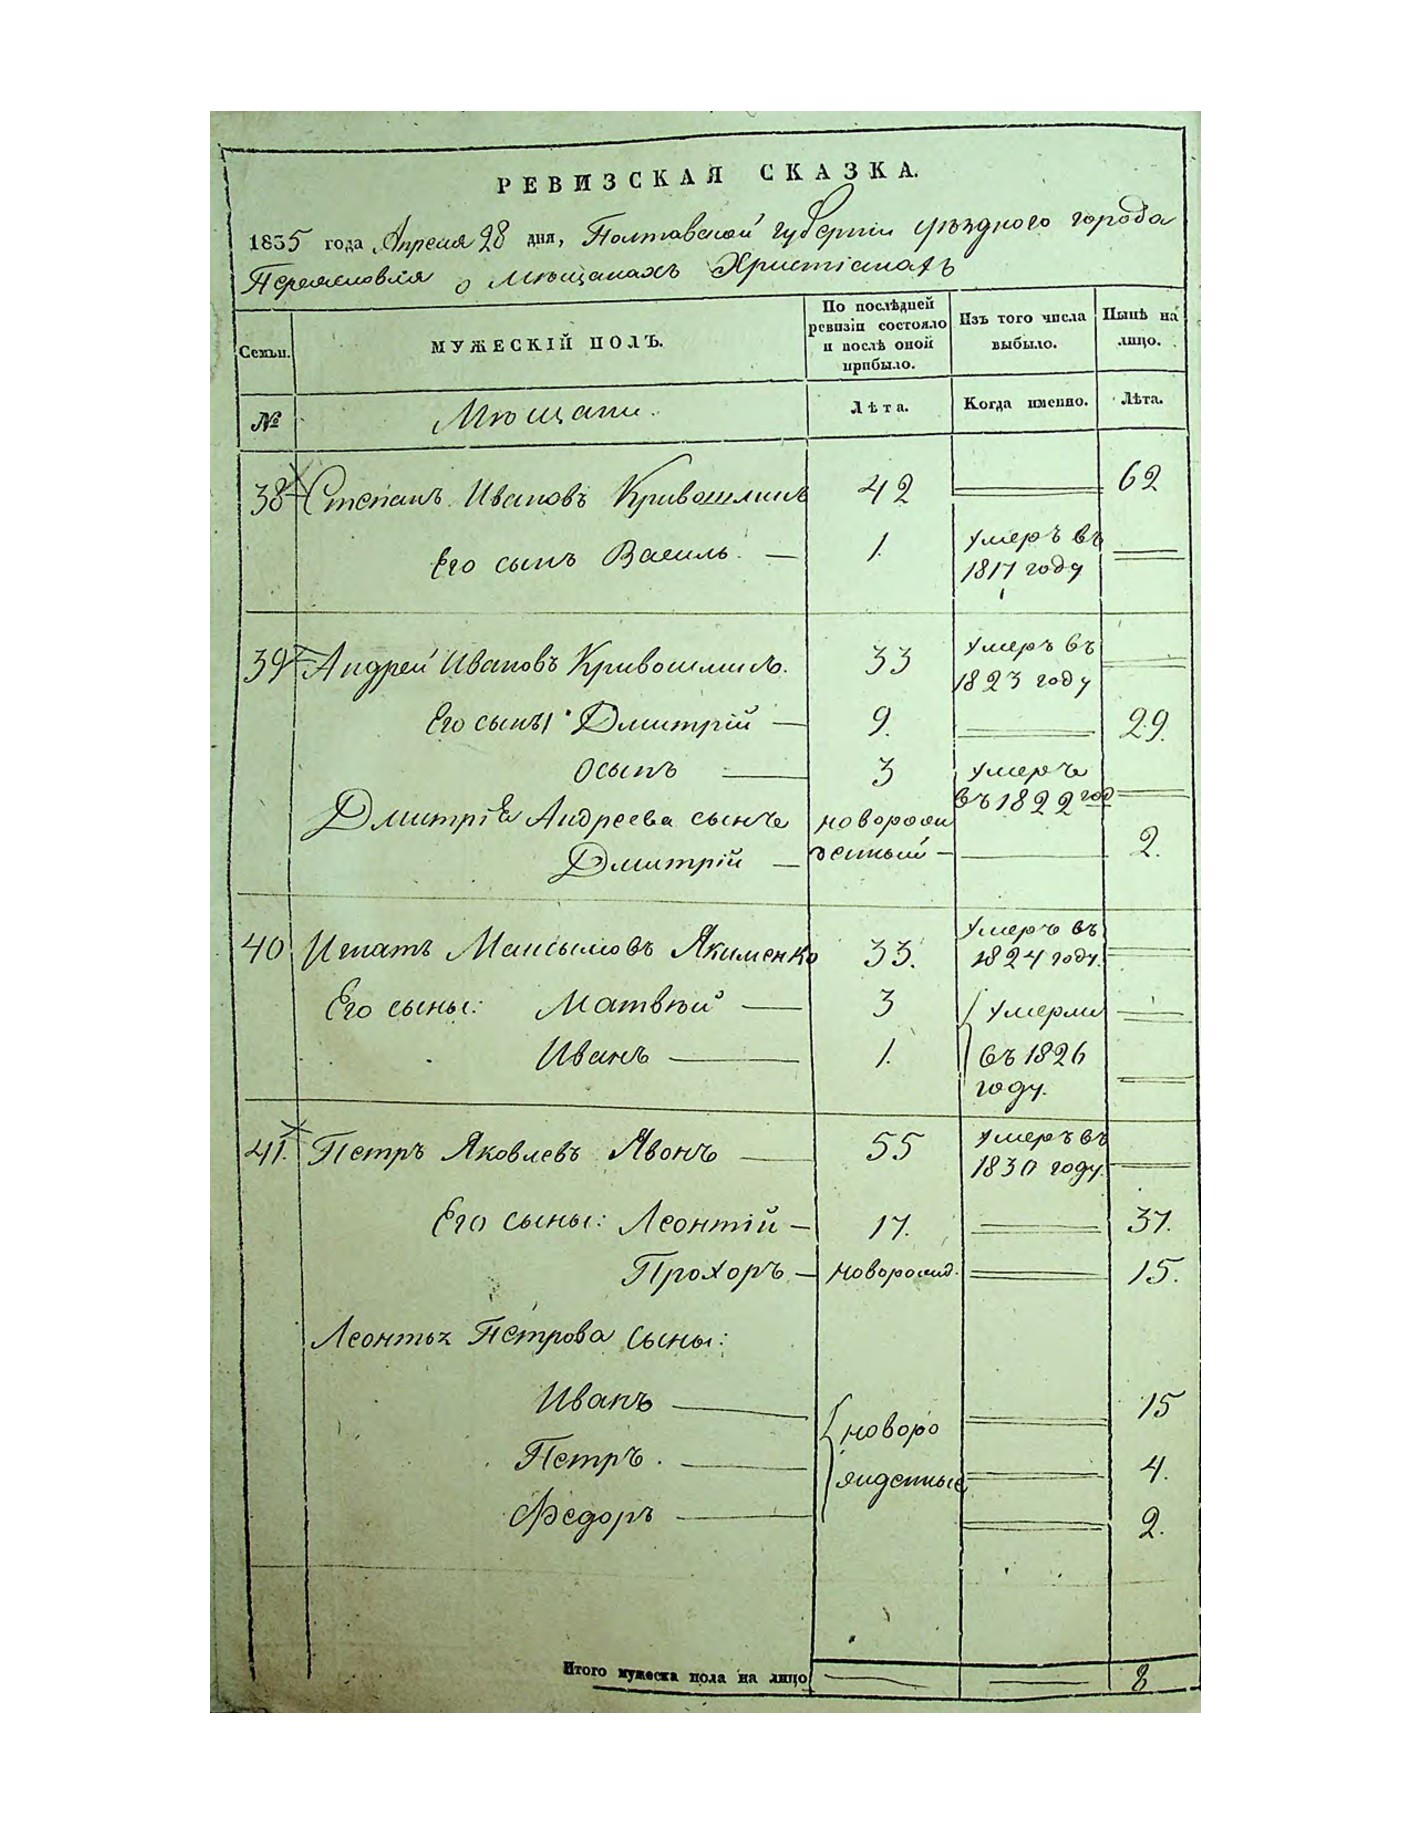 РЕВИЗСКАЯ СКАЗКА.
1835 года Апреля 28 дня, Полтавской губернiи уѣзднаго города
Переяслова о мѣщанахъ Христiанахъ
Семьи.
МУЖЕСКIЙ ПОЛЪ.
По послѣдней ревизiи состояло и послѣ оной прибыло.
Изъ того числа выбыло.
Нынѣ на лицо.
№
Мѣщани.
Лѣта.
Когда именно.
Лѣта.
38 Степанъ Ивановъ Кривошлыкъ 42 62
Его сынъ Василь. 1. умеръ въ 1817 году
39 Андрей Ивановъ Кривошлыкъ. 33 умеръ въ 1823 году
Его сыны Дмитрiй 9. 29.
Осыпъ 3 умеръ въ 1822 год
Дмитрiя Андреева сынъ новорож
Дмитрiй денный 2.
40 Игнатъ Максымовъ Якименко 33. умеръ въ 1824 году.
Его сыны: Матвѣй 3 умерли
Иванъ 1. въ 1826 году.
41. Петръ Яковлевъ Явонъ 55 умеръ въ 1830 году.
Его сыны: Леонтiй 17. 37.
Прохоръ новорожд. 15.
Леонтья Петрова сыны:
Иванъ новоро 15
Петръ. жденные 4.
Федоръ 2.
Итого мужеска пола на лицо 8